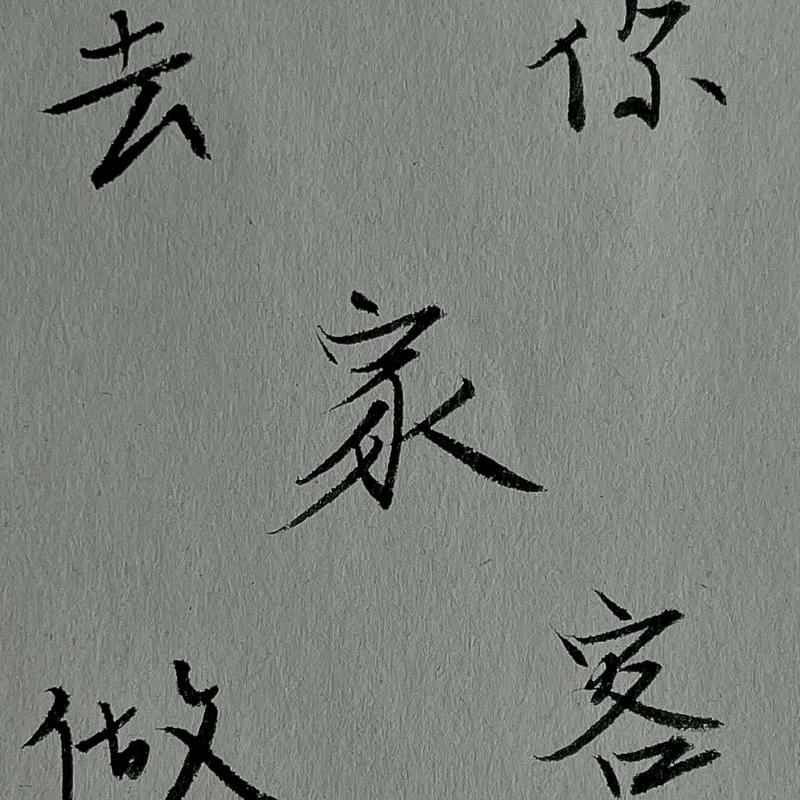 去 你
家
做 客